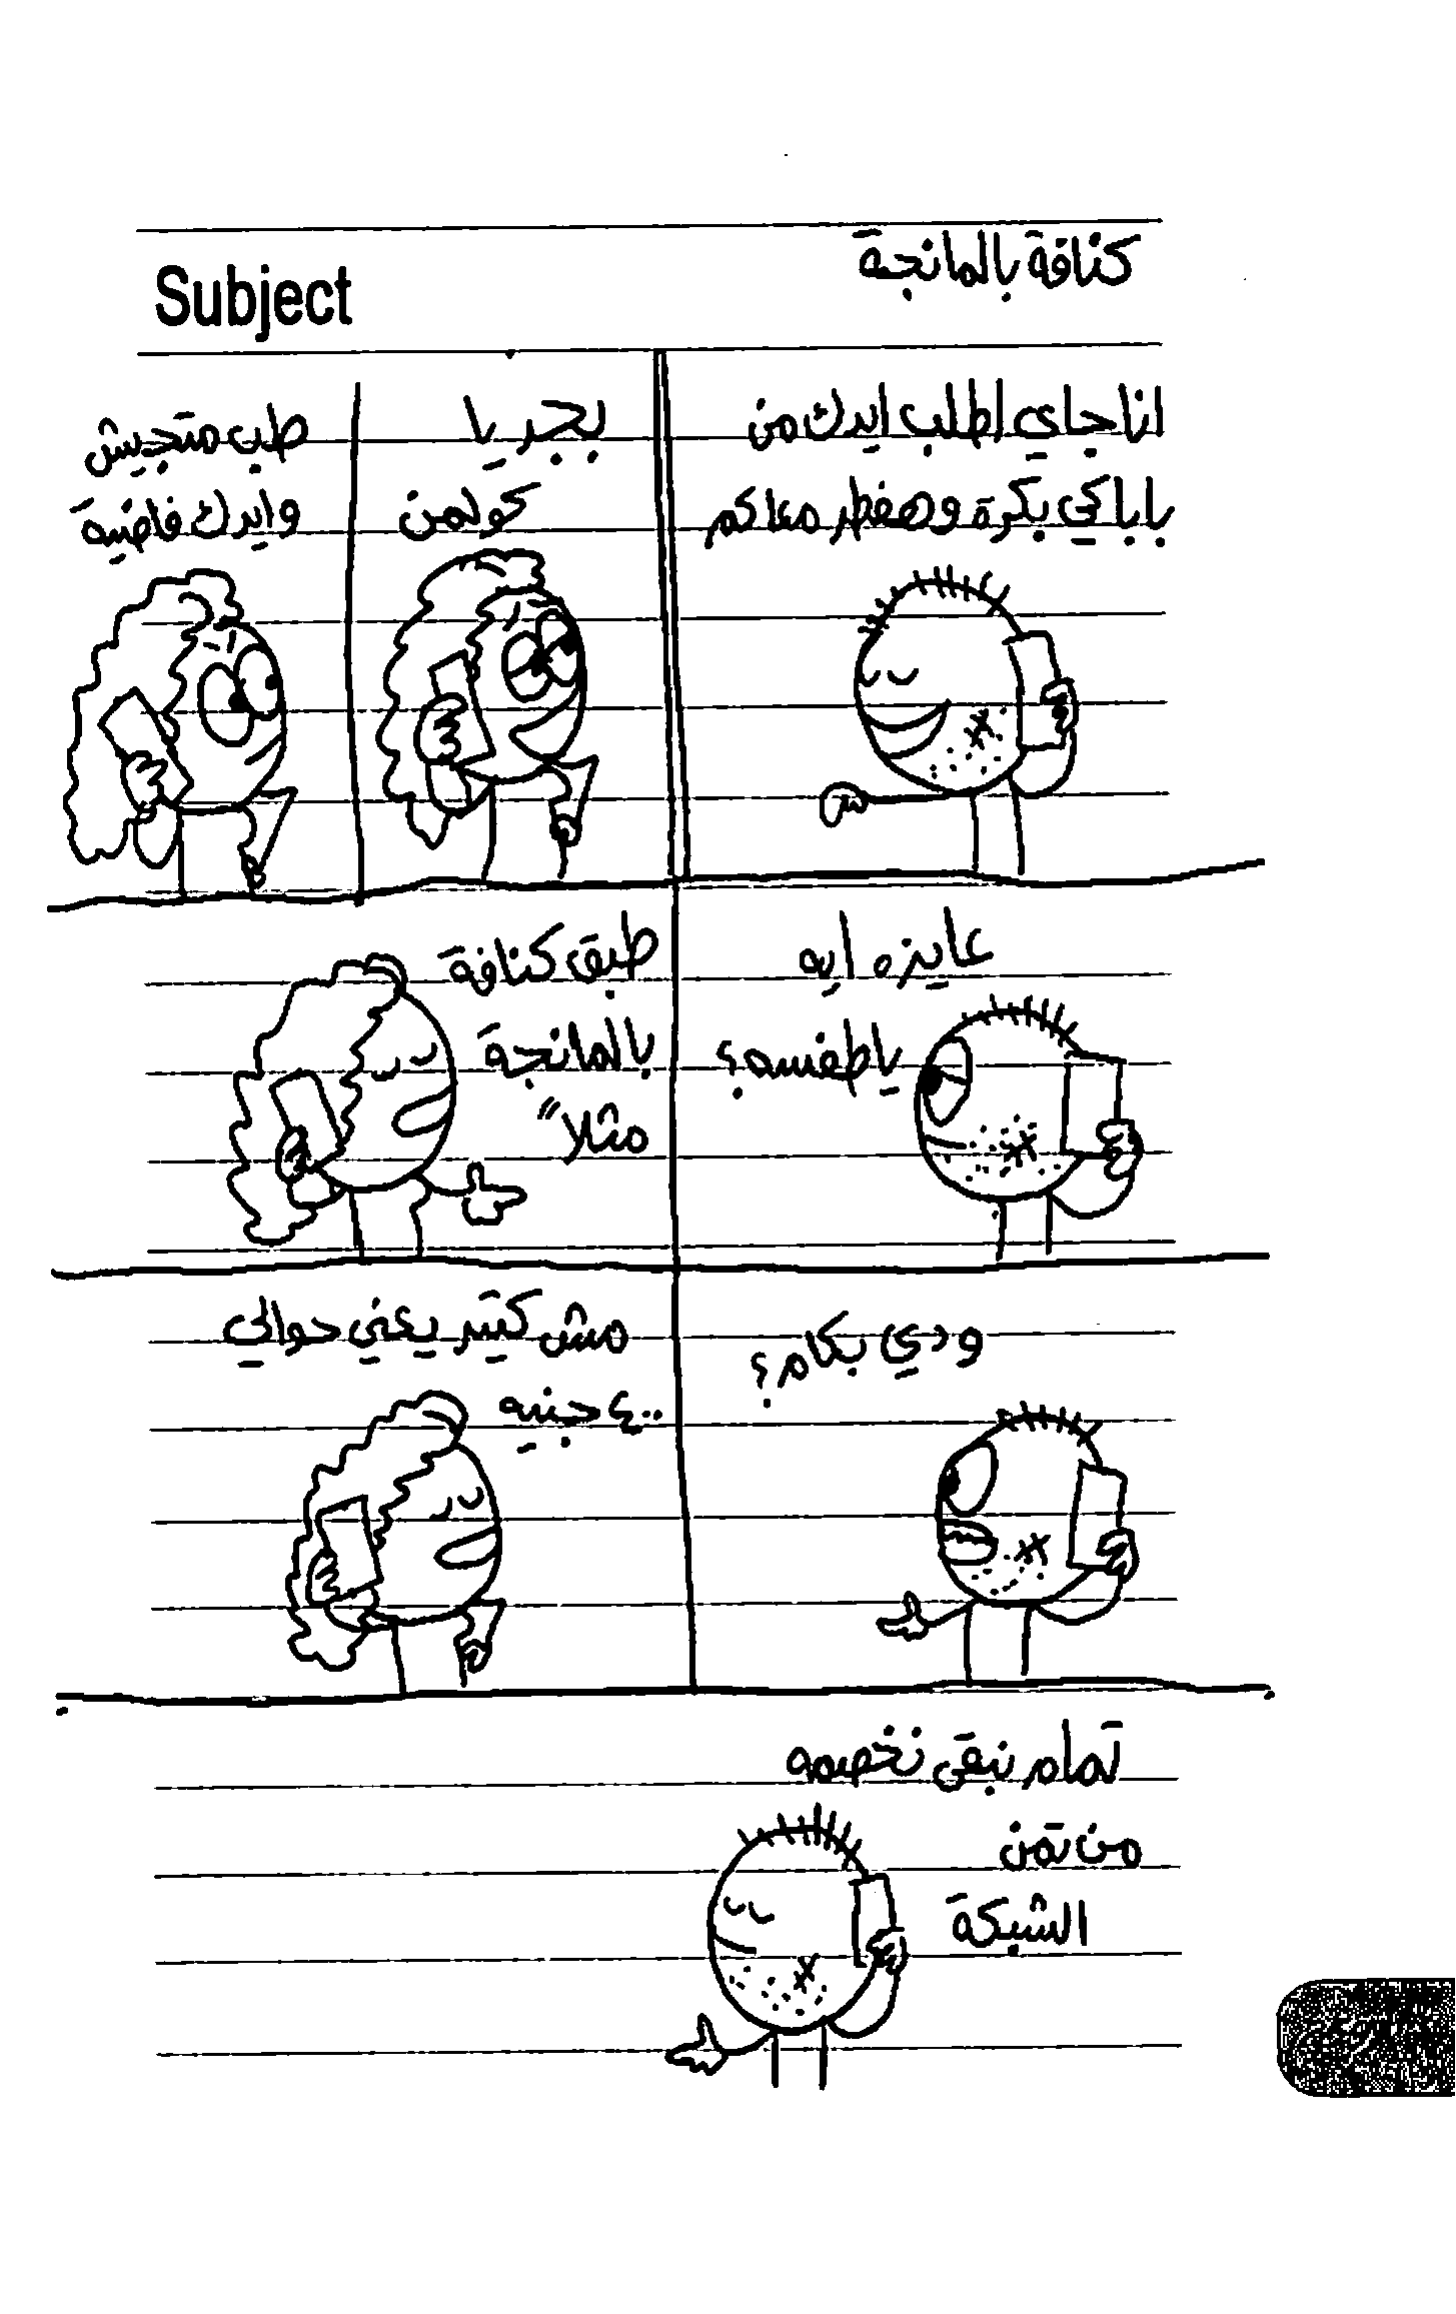 كنافة بالمانجة
Subject
انا جاي اطلب ايدك من
باباكي بكرة وهفطر معاكم
بجد يا
كولمن
طب متجيش
وايدك فاضيه
عايزه ايه
ياطفسه؟
طبق كنافة
بالمانجة
مثلاً
ودي بكام؟
مش كتير يعني حوالي
٤٠٠ جنيه
تمام نبقى نخصمه
من تمن
الشبكة